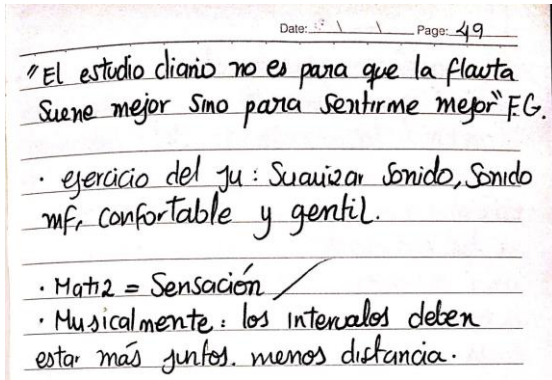 Date: \ \ Page: 49
"El estudio diario no es para que la flauta
Suene mejor Sino para Sentirme mejor" F.G.
· ejercicio del ju: Suavizar Sonido, Sonido
mf, confortable y gentil.
· Matiz = Sensación /
· Musicalmente: los intervalos deben
estar más juntos. menos distancia.